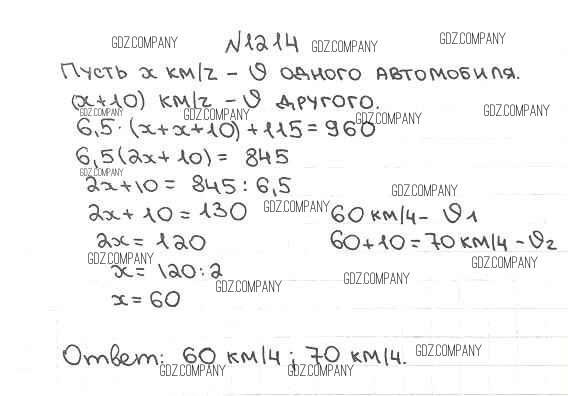 GDZ.COMPANY №1214 GDZ.COMPANY GDZ.COMPANY
Пусть x км/ч – υ одного автомобиля.
(x+10) км/ч – υ другого.
GDZ.COMPANY GDZ.COMPANY GDZ.COMPANY
6,5·(x+x+10)+115=960
6,5(2x+10)= 845
GDZ.COMPANY
2x+10= 845:6,5
GDZ.COMPANY
2x+10=130 GDZ.COMPANY 60 км/ч– υ1
2x=120 60+10=70 км/ч–υ2
GDZ.COMPANY GDZ.COMPANY
x= 120:2
GDZ.COMPANY GDZ.COMPANY
x=60
Ответ: 60 км/ч; 70 км/ч. GDZ.COMPANY
GDZ.COMPANY GDZ.COMPANY